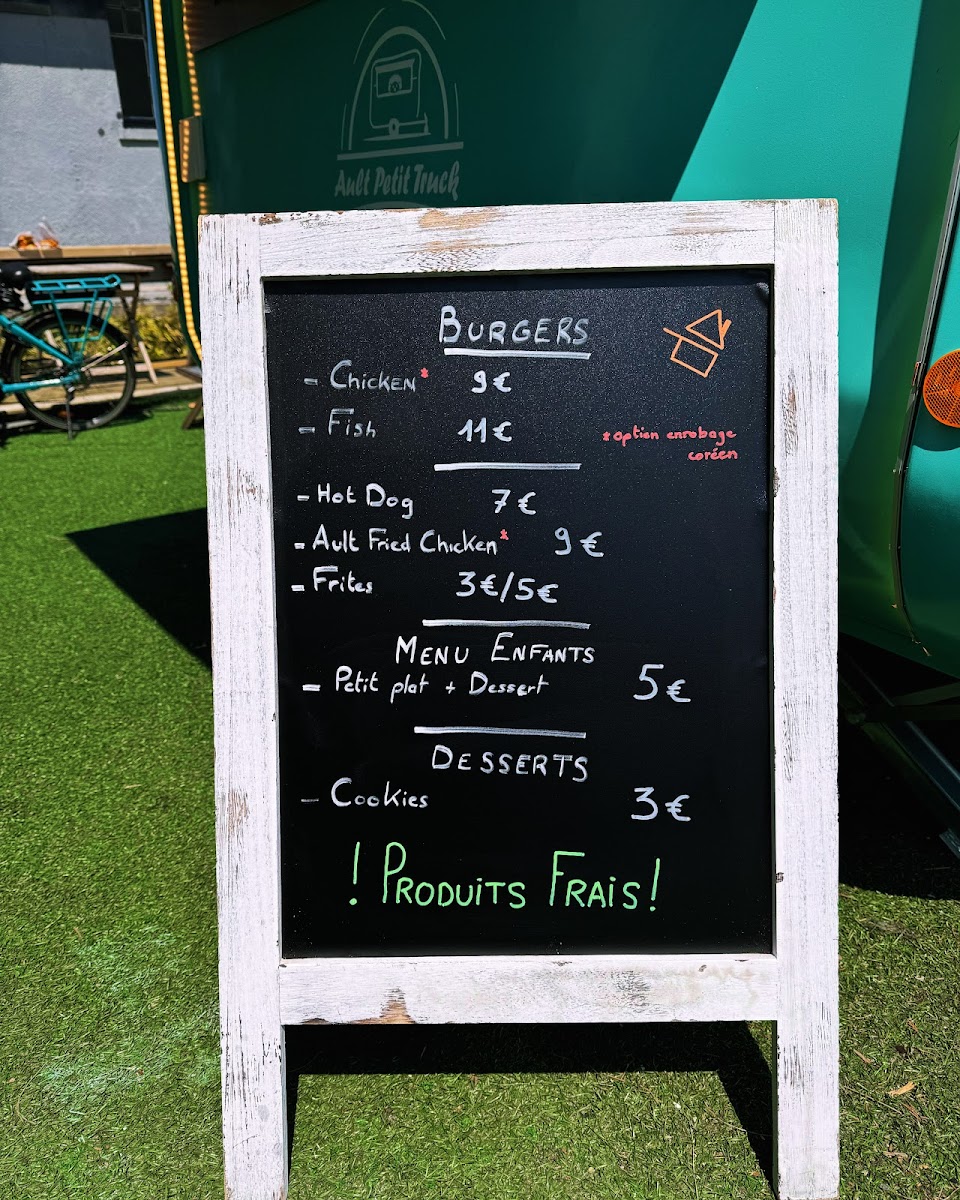 Ault Petit Truck
BURGERS
- CHICKEN* 9€
- Fish 11€
*option enrobage
coréen
- Hot Dog 7€
- Ault Fried Chicken* 9€
- Frites 3€/5€
MENU ENFANTS
- Petit plat + Dessert 5€
DESSERTS
- Cookies 3€
! PRODUITS FRAIS!